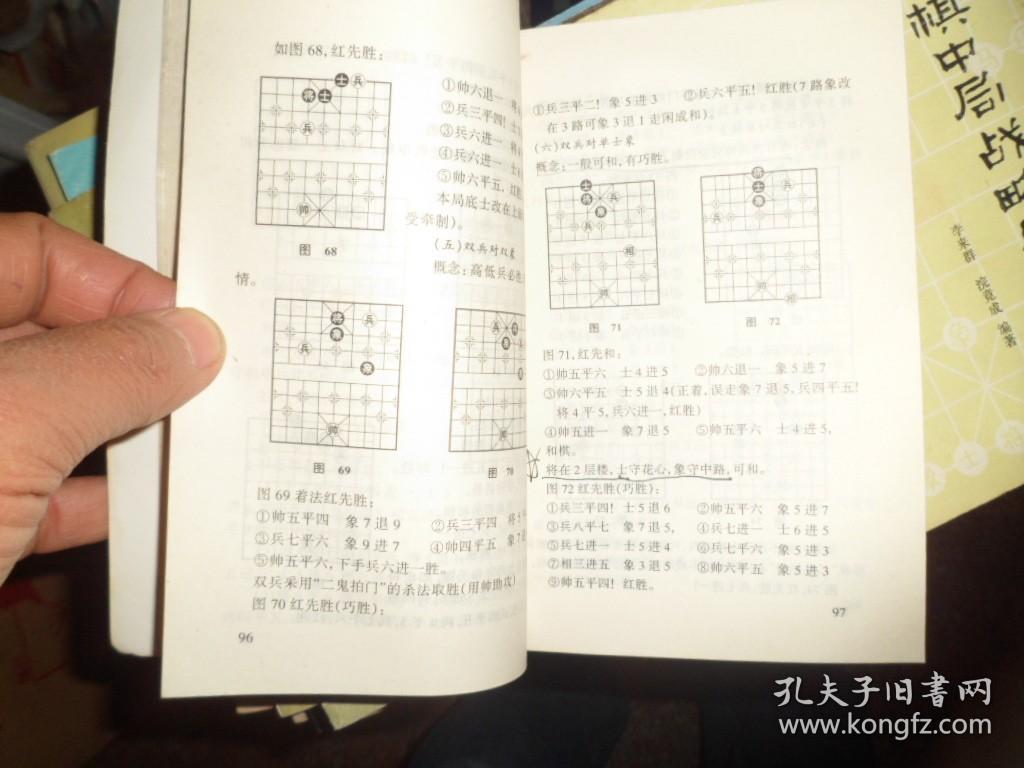 如图68,红先胜:
士 兵
将 士
兵
帅
图 68
①帅六退一 将
②兵三平四! 士
③兵六进一
④兵六进一 士
⑤帅六平五,红胜
本局底士改在上
受牵制)。
(五)双兵对双象
概念:高低兵必胜
情。
将 兵
象
兵
象
帅
图 69
图 70
图69着法红先胜:
①帅五平四 象7退9 ②兵三平四 将5
③兵七平六 象9进7 ④帅四平五 象7
⑤帅五平六,下手兵六进一胜。
双兵采用“二鬼拍门”的杀法取胜(用帅助攻)
图70红先胜(巧胜):
96
①兵三平二! 象5进3 ②兵六平五! 红胜(7路象改
在3路可象3退1走闲成和)。
(六)双兵对单士象
概念:一般可和,有巧胜。
士
将 兵
象
兵
相
帅
图 71
将
士 兵
象
兵
帅
相
图 72
图71,红先和:
①帅五平六 士4进5 ②帅六退一 象5进7
③帅六平五 士5退4(正着,误走象7退5,兵四平五!
将4平5,兵六进一,红胜)
④帅五进一 象7退5 ⑤帅五平六 士4进5,
和棋。
将在2层楼,士守花心,象守中路,可和。
图72红先胜(巧胜):
①兵三平四! 士5退6 ②帅五平六 象5进7
③兵八平七 象7退5, ④兵七进一 士6进5
⑤兵七进一 士5进4 ⑥兵七平六 象5进3
⑦相三进五 象3退5 ⑧帅六平五 象5进3
⑨帅五平四! 红胜。
97
棋中局战
李来群
浣竟成 编著
孔夫子旧书网
www.kongfz.com